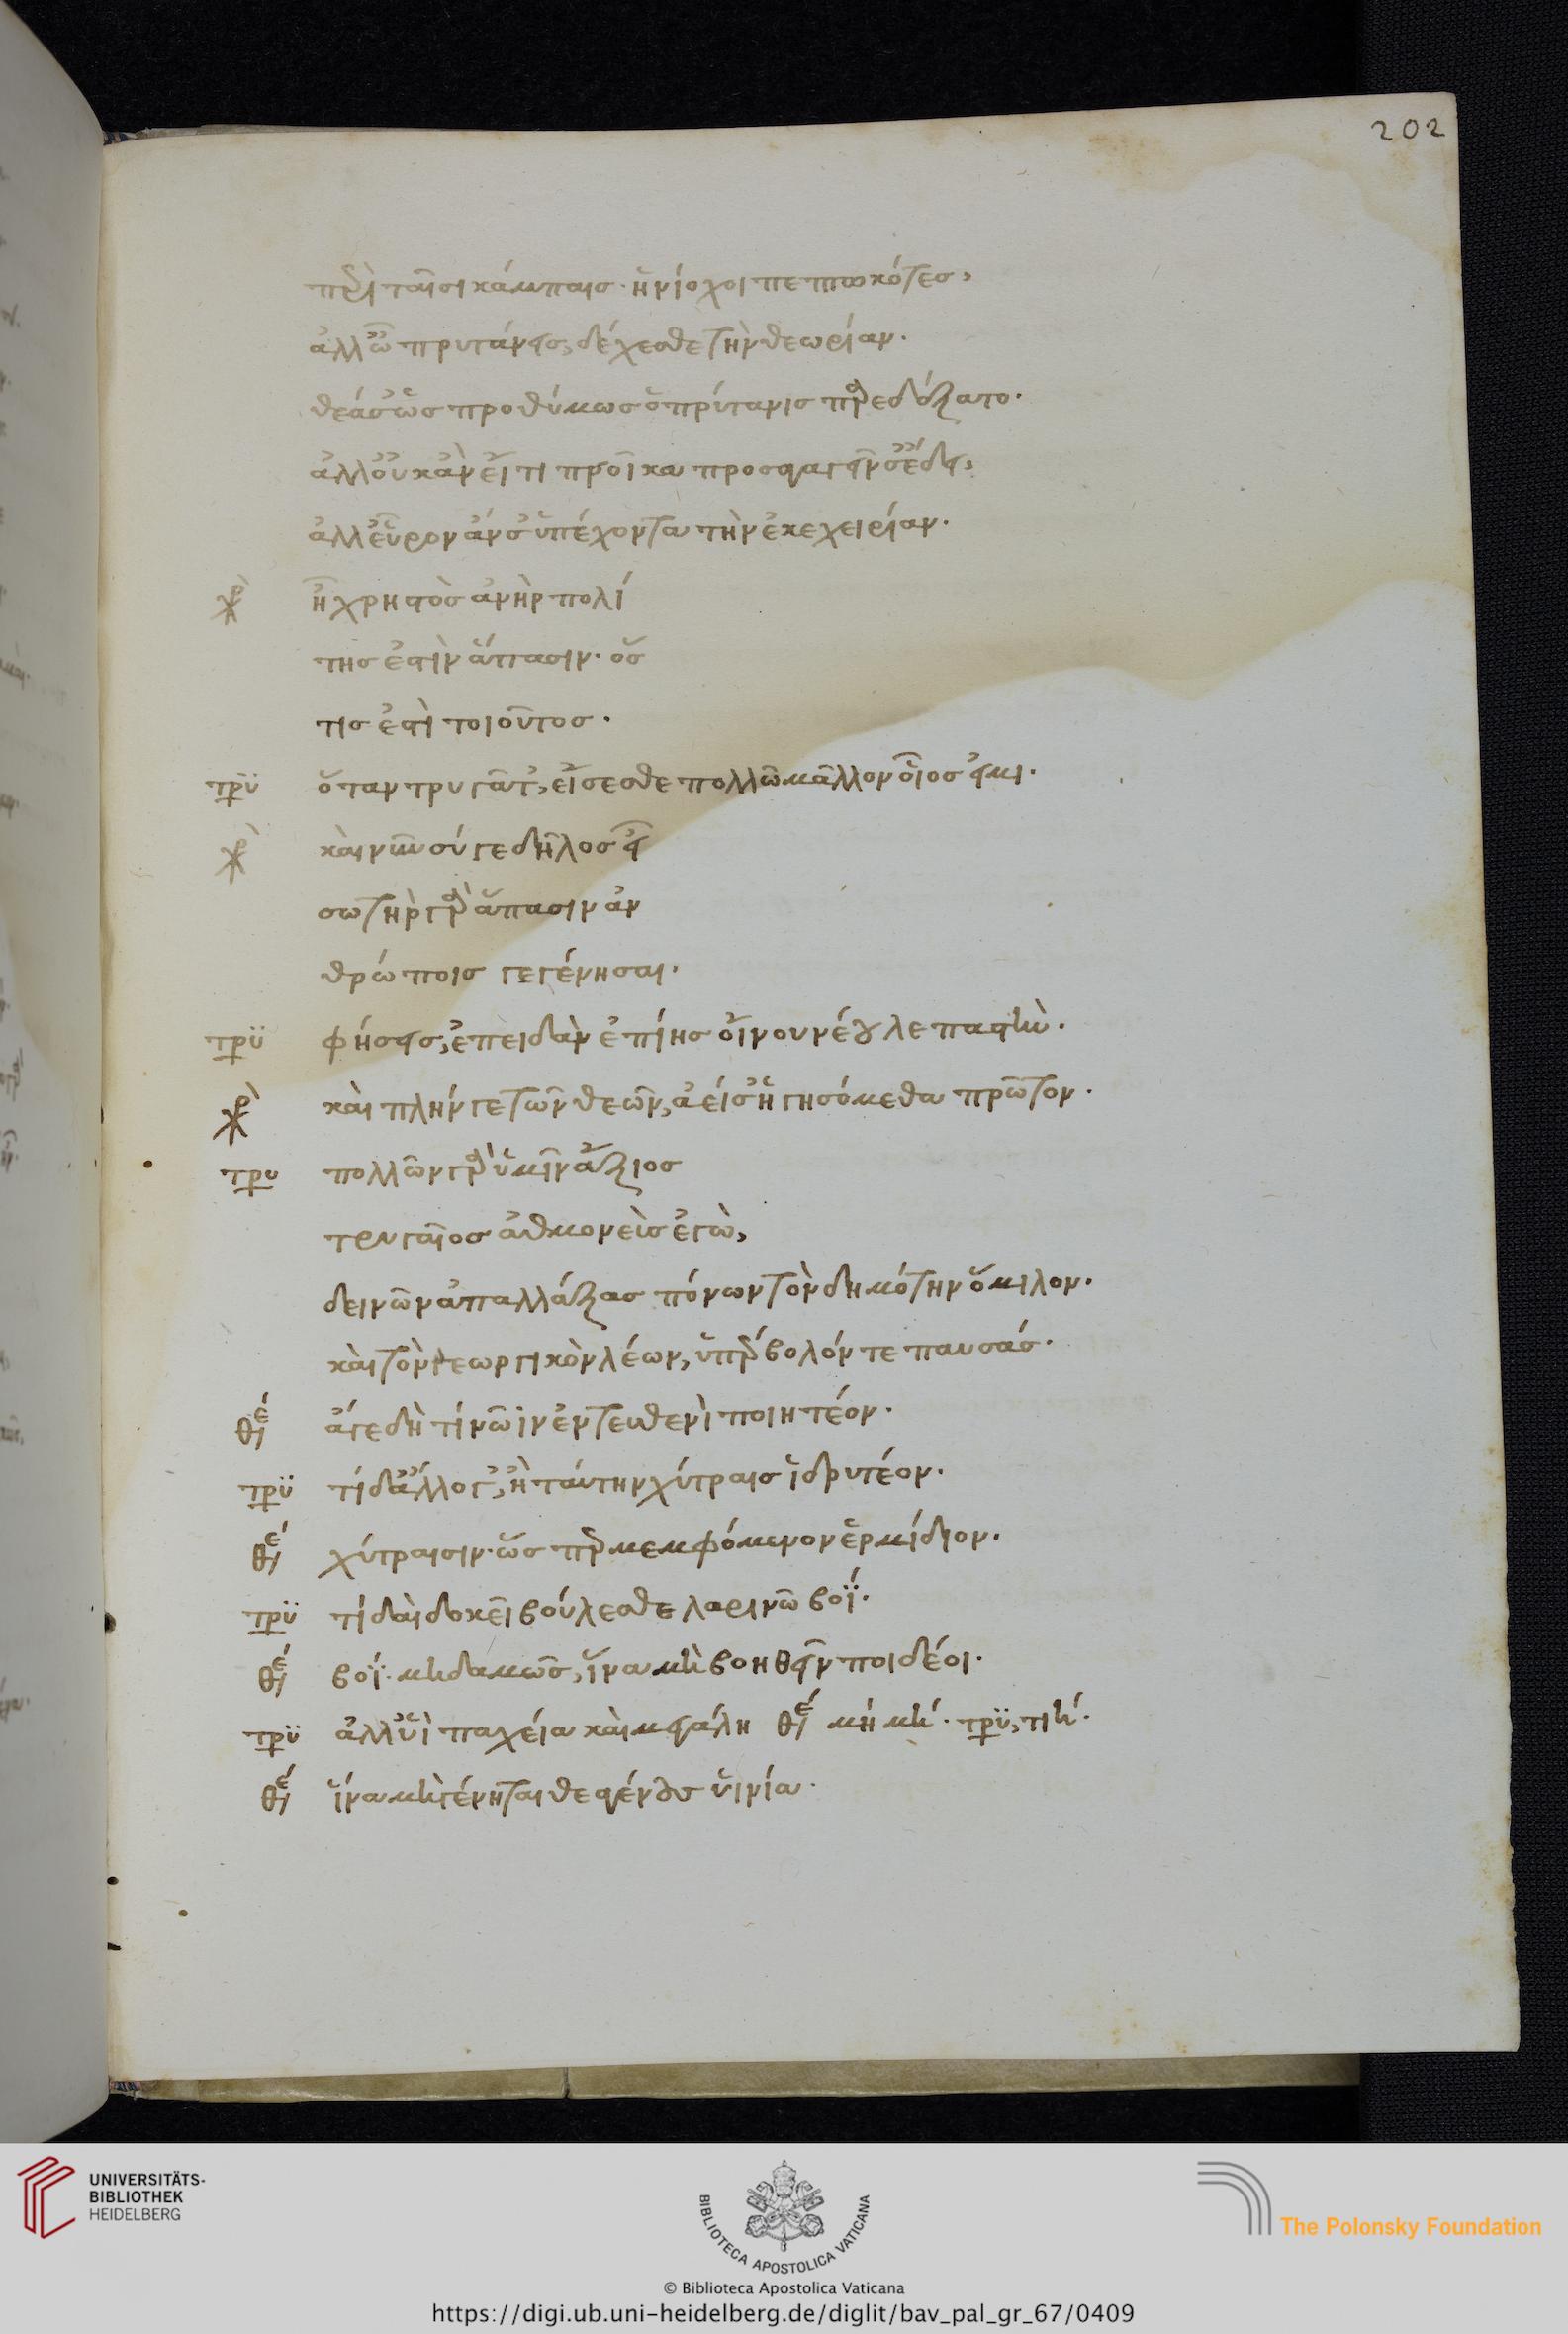 202
περὶ ταῖσι κάμπαις· ἡνίοχοι πεπτωκότες,
ἀλλ' ὦ πρυτάνεις, δέχεσθε τὴν θεωρίαν.
θέασ' ὡς προθύμως ὁ πρύτανις παρεδέξατο.
ἀλλ' οὐκ ἂν εἴ τι προῖκα προσαγαγεῖν σ' ἔδει,
ἀλλ' εὗρον ἄν σ' ὑπέχοντα τὴν ἐκεχειρίαν.
χο ἦ χρηστὸς ἀνὴρ πολί
της ἐστὶν ἅπασιν· ὅσ
τις ἐστὶ τοιοῦτος.
τρυ ὅταν τρυγᾶτ', εἴσεσθε πολλῶ μᾶλλον οἷος εἰμι.
χο καὶ νῦν σύ γε δῆλος εἶ
σωτὴρ γὰρ ἅπασιν ἀν
θρώποις γεγένησαι.
τρυ φήσεις, ἐπειδὰν ἐπίῃς οἴνου νέου λεπαστήν.
χο καὶ πλήν γε τῶν θεῶν, ἀεί σ' ἡγησόμεθα πρῶτον.
τρυ πολλῶν γὰρ ὑμῖν ἄξιος
τρυγαῖος ἀθμονεὺς ἐγὼ,
δεινῶν ἀπαλλάξας πόνων τὸν δημότην ὅμιλον.
καὶ τὸν γεωργικὸν λέων, ὑπέρβολόν τε παύσας.
θε ἄγε δὴ τί νῶϊν ἐντευθενὶ ποιητέον.
τρυ τί δ' ἄλλο γ', ἢ ταύτην χύτραις ἱδρυτέον.
θε χύτραισιν· ὥσπερ μεμφόμενον ἑρμίδιον.
τρυ τί δαὶ δοκεῖ βούλεσθε λαρινῶ βοΐ.
θε βοΐ· μηδαμῶς, ἵνα μὴ βοηθεῖν ποι δέοι.
τρυ ἀλλ' ὑῒ παχεία καὶ μεγάλη θε μὴ μή. τρυ, τιή.
θε ἵνα μὴ γένηται θεαγένους ὑινία.
UNIVERSITÄTS-
BIBLIOTHEK
HEIDELBERG
BIBLIOTECA APOSTOLICA VATICANA
The Polonsky Foundation
© Biblioteca Apostolica Vaticana
https://digi.ub.uni-heidelberg.de/diglit/bav_pal_gr_67/0409